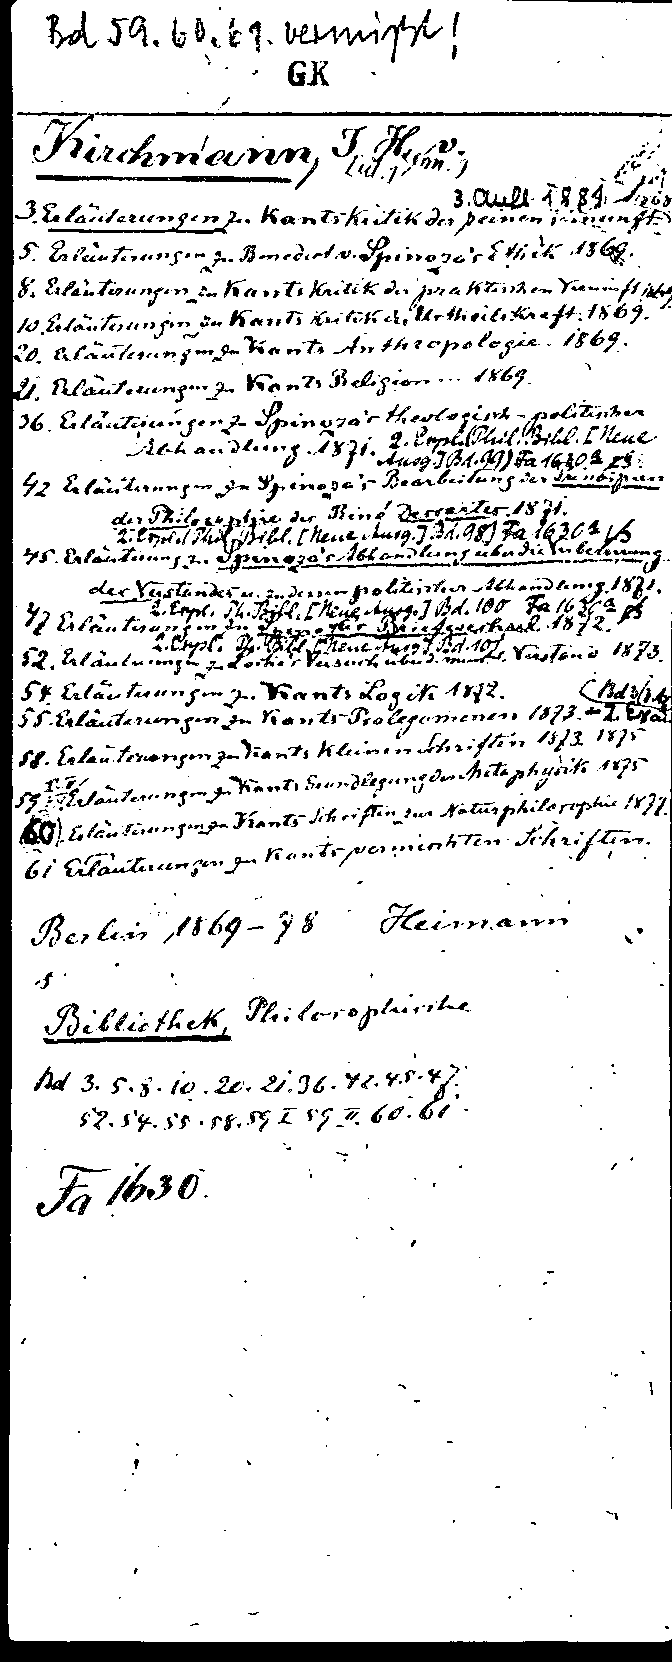 Bd 59. 60. 61. vermißt!
GK
Kirchmann, J. H. v.
3. Aufl. 1881
3. Erläuterungen zu Kants Kritik der reinen Vernunft
5. Erläuterungen zu Benedict v. Spinoza's Ethik 1869.
8. Erläuterungen zu Kants Kritik der praktischen Vernunft
10. Erläuterungen zu Kants Kritik der Urtheilskraft. 1869.
20. Erläuterungen zu Kants Anthropologie. 1869.
21. Erläuterungen zu Kants Religion ... 1869.
36. Erläuterungen zu Spinoza's theologisch-politischer
Abhandlung. 1871. 2. Expl. Phil. Bibl. [Neue
Ausg.] (Bd. 99) Fa 1630a
42 Erläuterungen zu Spinoza's Bearbeitung der Prinzipien
der Philosophie des René Descartes. 1871.
2. Expl. Phil. Bibl. [Neue Ausg.] Bd. 98) Fa 1630a
45. Erläuterung zu Spinoza's Abhandlung über die Verbesserung
des Verstandes u. zu dessen politischer Abhandlung. 1871.
2. Expl. Ph. Bibl. [Neue Ausg.] Bd. 100 Fa 1630a
47 Erläuterungen zu Spinoza's Briefwechsel. 1872.
2. Expl. Ph. Bibl. [Neue Ausg.] Bd. 101
52. Erläuterungen zu Locke's Versuch über d. menschl. Verstand 1873.
54. Erläuterungen zu Kants Logik 1872.
55. Erläuterungen zu Kants Prolegomenen 1873.
58. Erläuterungen zu Kants kleinen Schriften 1873. 1875
59 I. II. Erläuterungen zu Kants Grundlegung der Metaphysik 1875
60) Erläuterungen zu Kants Schriften zur Naturphilosophie 1877.
61 Erläuterungen zu Kants vermischten Schriften.
Berlin, 1869-78 Heimann
s
Bibliothek, Philosophische
Bd 3. 5. 8. 10. 20. 21. 36. 42. 45. 47.
52. 54. 55. 58. 59 I 59 II. 60. 61.
Fa 1630.